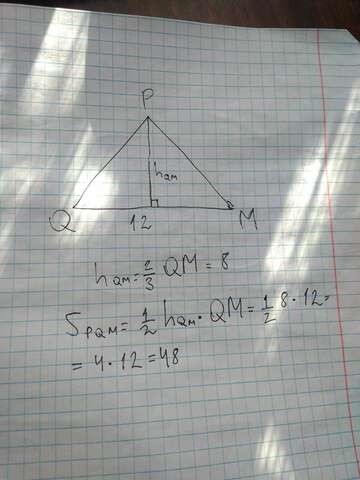 P
h_QM
Q 12 M
h_QM = 2/3 QM = 8
S_PQM = 1/2 h_QM · QM = 1/2 8 · 12 =
= 4 · 12 = 48